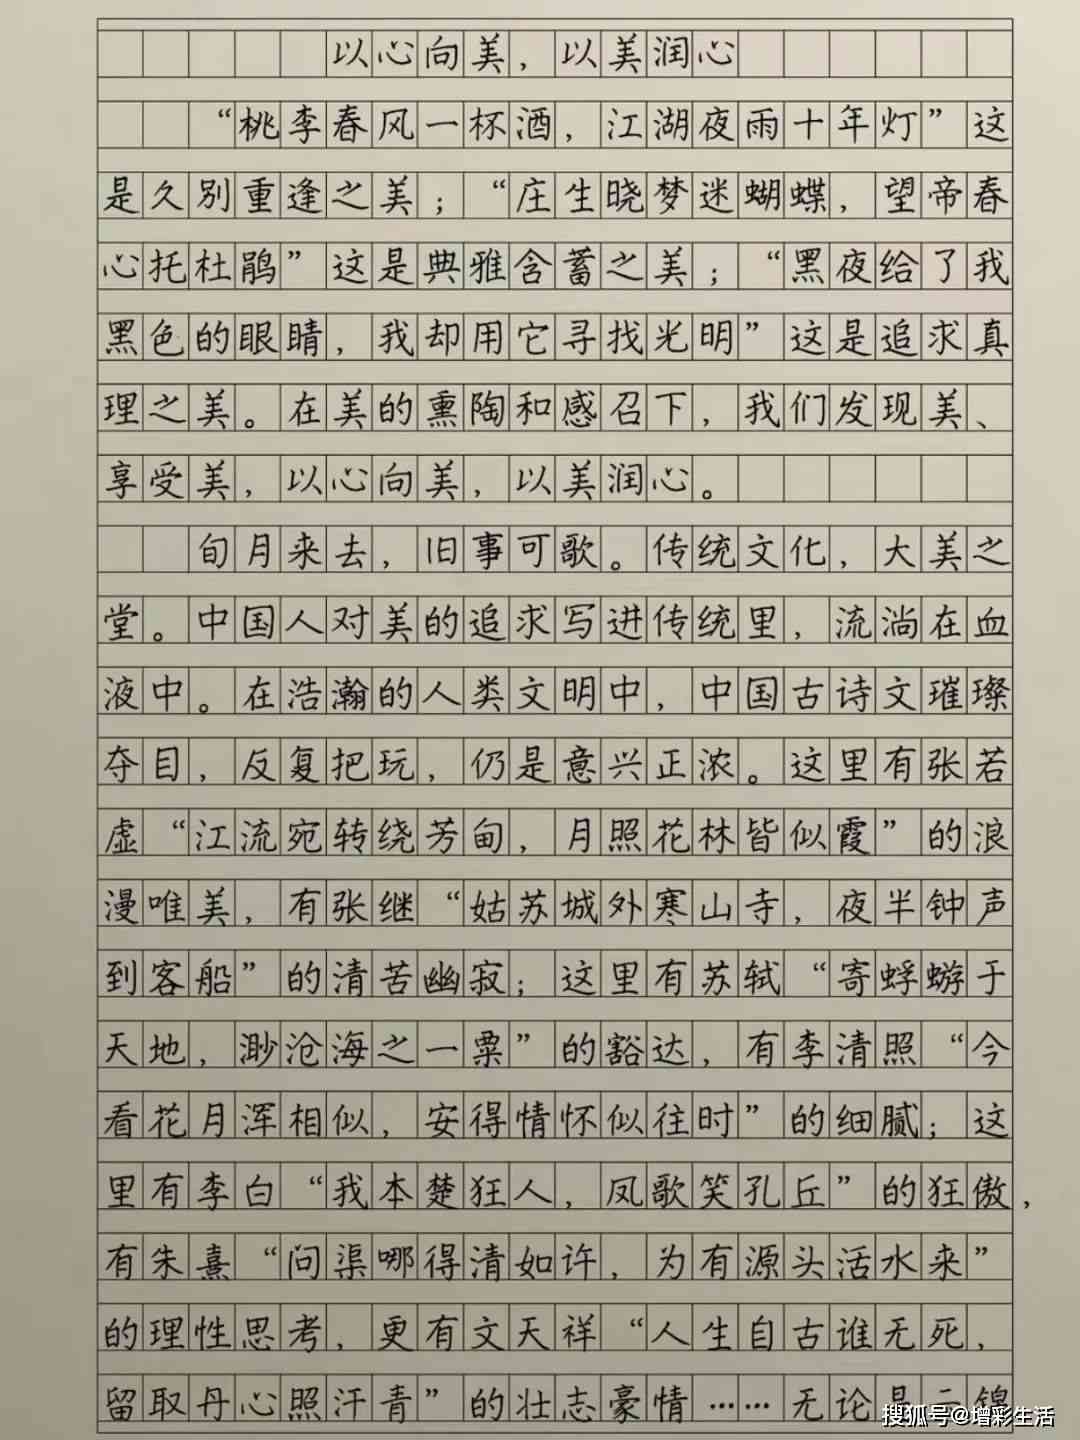 以心向美，以美润心
“桃李春风一杯酒，江湖夜雨十年灯”这
是久别重逢之美；“庄生晓梦迷蝴蝶，望帝春
心托杜鹃”这是典雅含蓄之美；“黑夜给了我
黑色的眼睛，我却用它寻找光明”这是追求真
理之美。在美的熏陶和感召下，我们发现美、
享受美，以心向美，以美润心。
旬月来去，旧事可歌。传统文化，大美之
堂。中国人对美的追求写进传统里，流淌在血
液中。在浩瀚的人类文明中，中国古诗文璀璨
夺目，反复把玩，仍是意兴正浓。这里有张若
虚“江流宛转绕芳甸，月照花林皆似霞”的浪
漫唯美，有张继“姑苏城外寒山寺，夜半钟声
到客船”的清苦幽寂；这里有苏轼“寄蜉蝣于
天地，渺沧海之一粟”的豁达，有李清照“今
看花月浑相似，安得情怀似往时”的细腻；这
里有李白“我本楚狂人，凤歌笑孔丘”的狂傲，
有朱熹“问渠哪得清如许，为有源头活水来”
的理性思考，更有文天祥“人生自古谁无死，
留取丹心照汗青”的壮志豪情……无论是云锦
搜狐号@增彩生活